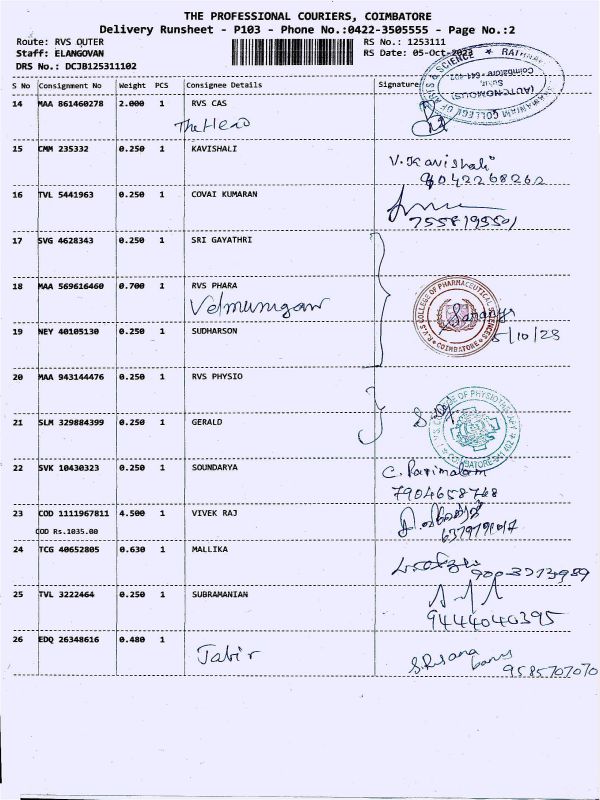 THE PROFESSIONAL COURIERS, COIMBATORE
Delivery Runsheet - P103 - Phone No.:0422-3505555 - Page No.:2
Route: RVS OUTER RS No.: 1253111
Staff: ELANGOVAN RS Date: 05-Oct-2023
DRS No.: DCJB125311102
S No Consignment No Weight PCS Consignee Details Signature
14 MAA 861460278 2.000 1 RVS CAS
The Head
15 CMM 235332 0.250 1 KAVISHALI
V. Kavishali
9042268262
16 TVL 5441963 0.250 1 COVAI KUMARAN
7558195501
17 SVG 4628343 0.250 1 SRI GAYATHRI
18 MAA 569616460 0.700 1 RVS PHARA
Velmurugan
R.V.S. COLLEGE OF PHARMACEUTICAL SCIENCES
COIMBATORE
5/10/23
19 NEY 40105130 0.250 1 SUDHARSON
20 MAA 943144476 0.250 1 RVS PHYSIO
COLLEGE OF PHYSIOTHERAPY
COIMBATORE-641 402
21 SLM 329884399 0.250 1 GERALD
22 SVK 10430323 0.250 1 SOUNDARYA
C. Parimalam
7904658768
23 COD 1111967811 4.500 1 VIVEK RAJ
COD Rs.1035.00
24 TCG 40652805 0.630 1 MALLIKA
9003713989
25 TVL 3222464 0.250 1 SUBRAMANIAN
9444040395
26 EDQ 26348616 0.480 1
Jabir
9585707070